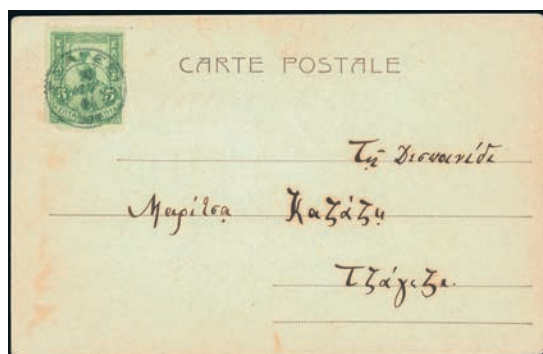 CARTE POSTALE
Τῇ Δεσποινίδι
Μαρίτσα Καζάζη
Τζάγεζι